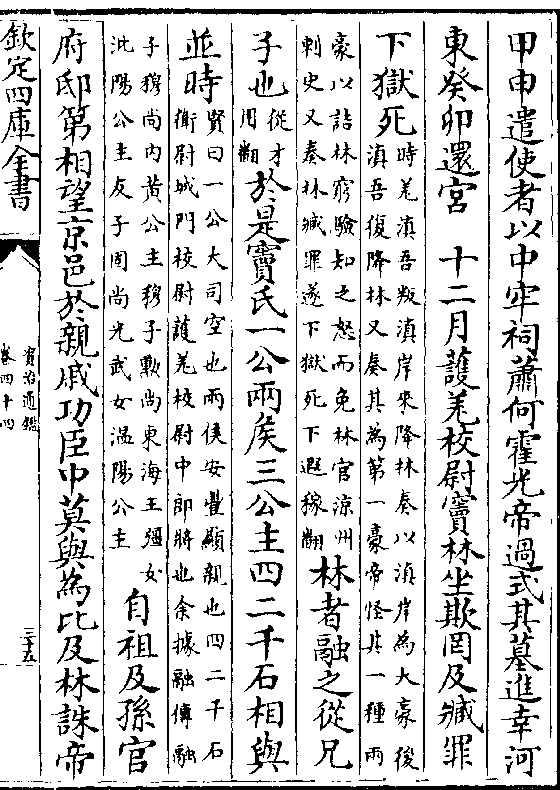 甲申遣使者以中牢祠蕭何霍光帝過式其墓進幸河
東癸卯還宫　十二月䕶羌校尉竇林坐欺罔及臧罪
下獄死時羌滇吾叛滇岸來降林奏以滇岸為大豪後滇吾復降林又奏其為第一豪帝怪其一種兩
豪以詰林窮驗知之怒而免林官涼州刺史又奏林臧罪遂下獄死下遐稼翻林者融之從兄
子也從才用翻於是竇氏一公兩矦三公主四二千石相與
並時賢曰一公大司空也兩侯安豐顯親也四二千石衛尉城門校尉䕶羌校尉中郎將也余據融傳融
子穆尚内黄公主穆子勲尚東海王彊女沘陽公主友子固尚光武女温陽公主自祖及孫官
府邸第相望京邑於親戚功臣中莫與為比及林誅帝
欽定四庫全書
資治通鑑
卷四十四
三十五